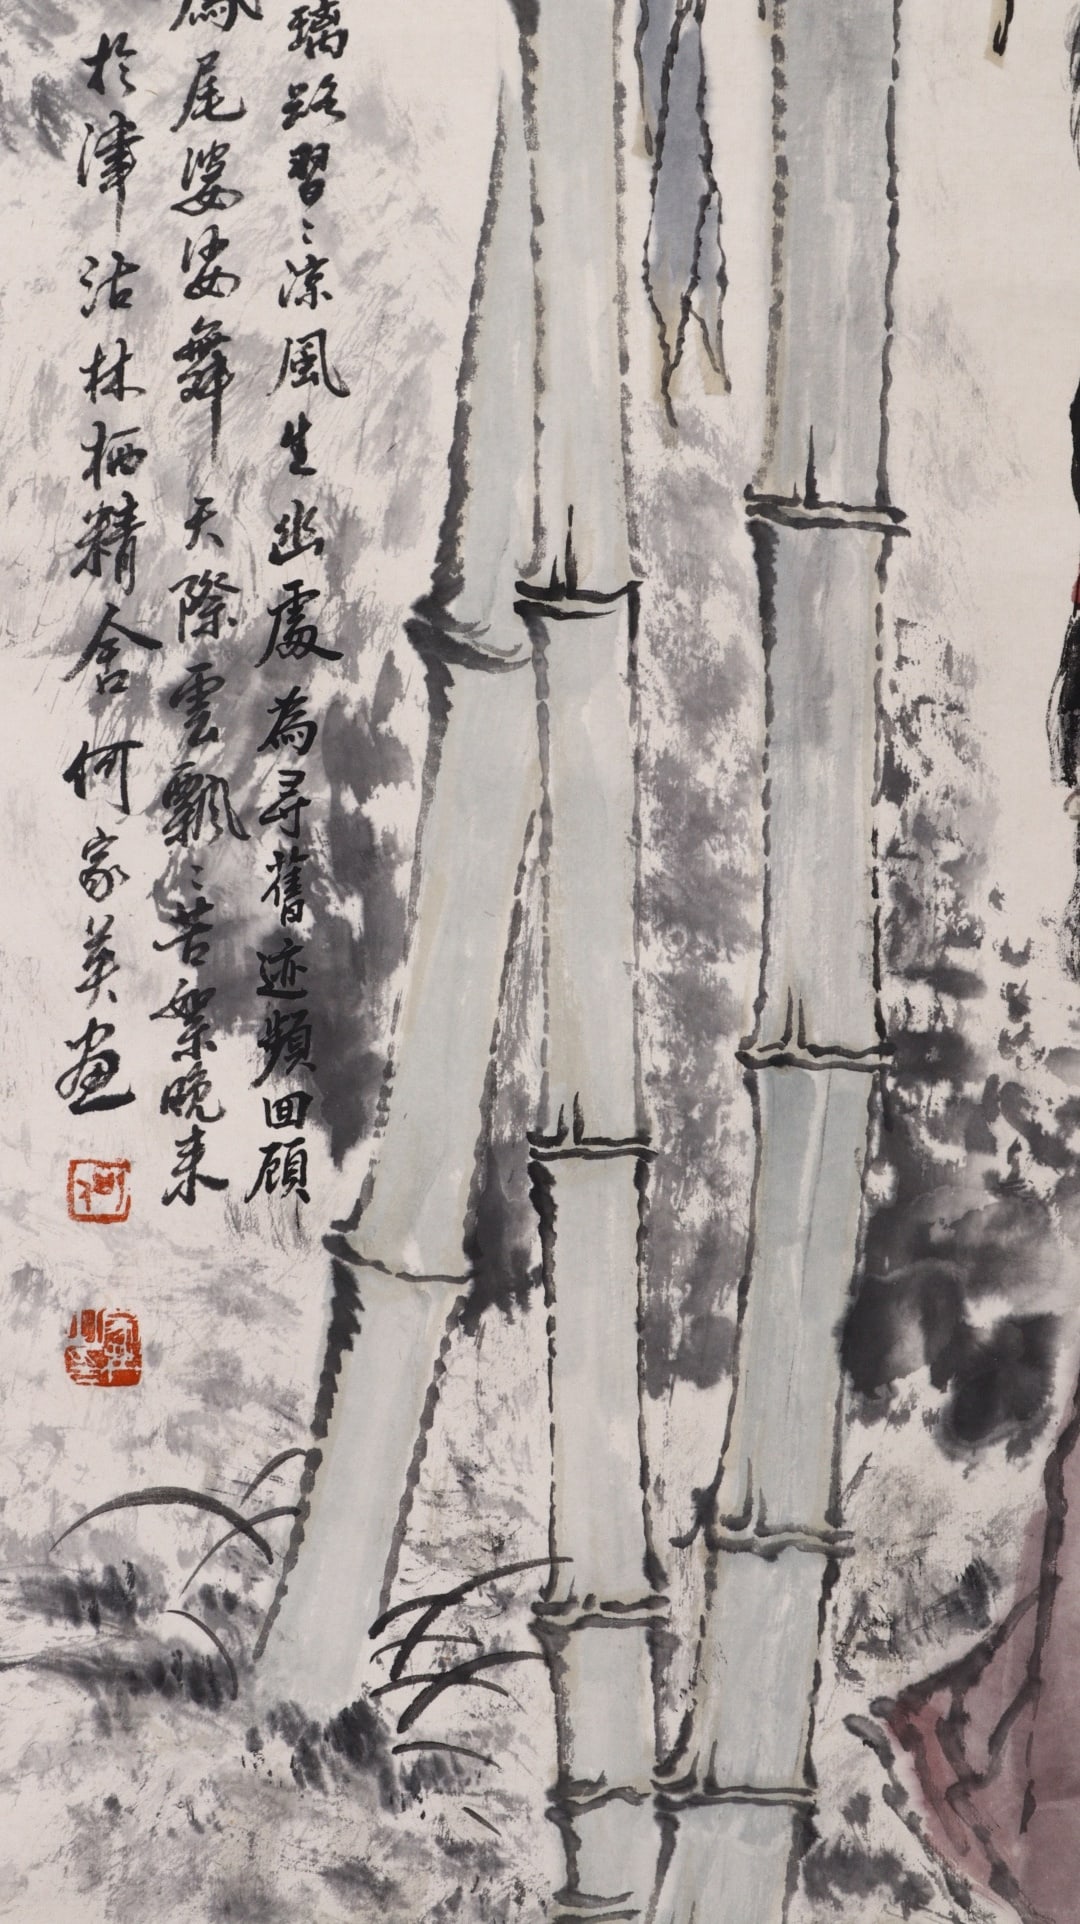 璃路習〻涼風生幽處為尋舊迹頻回顧
鳳尾婆娑舞天際雲飄〻苦絮晚来
於津沽林栖精舍何家英画
何
家英